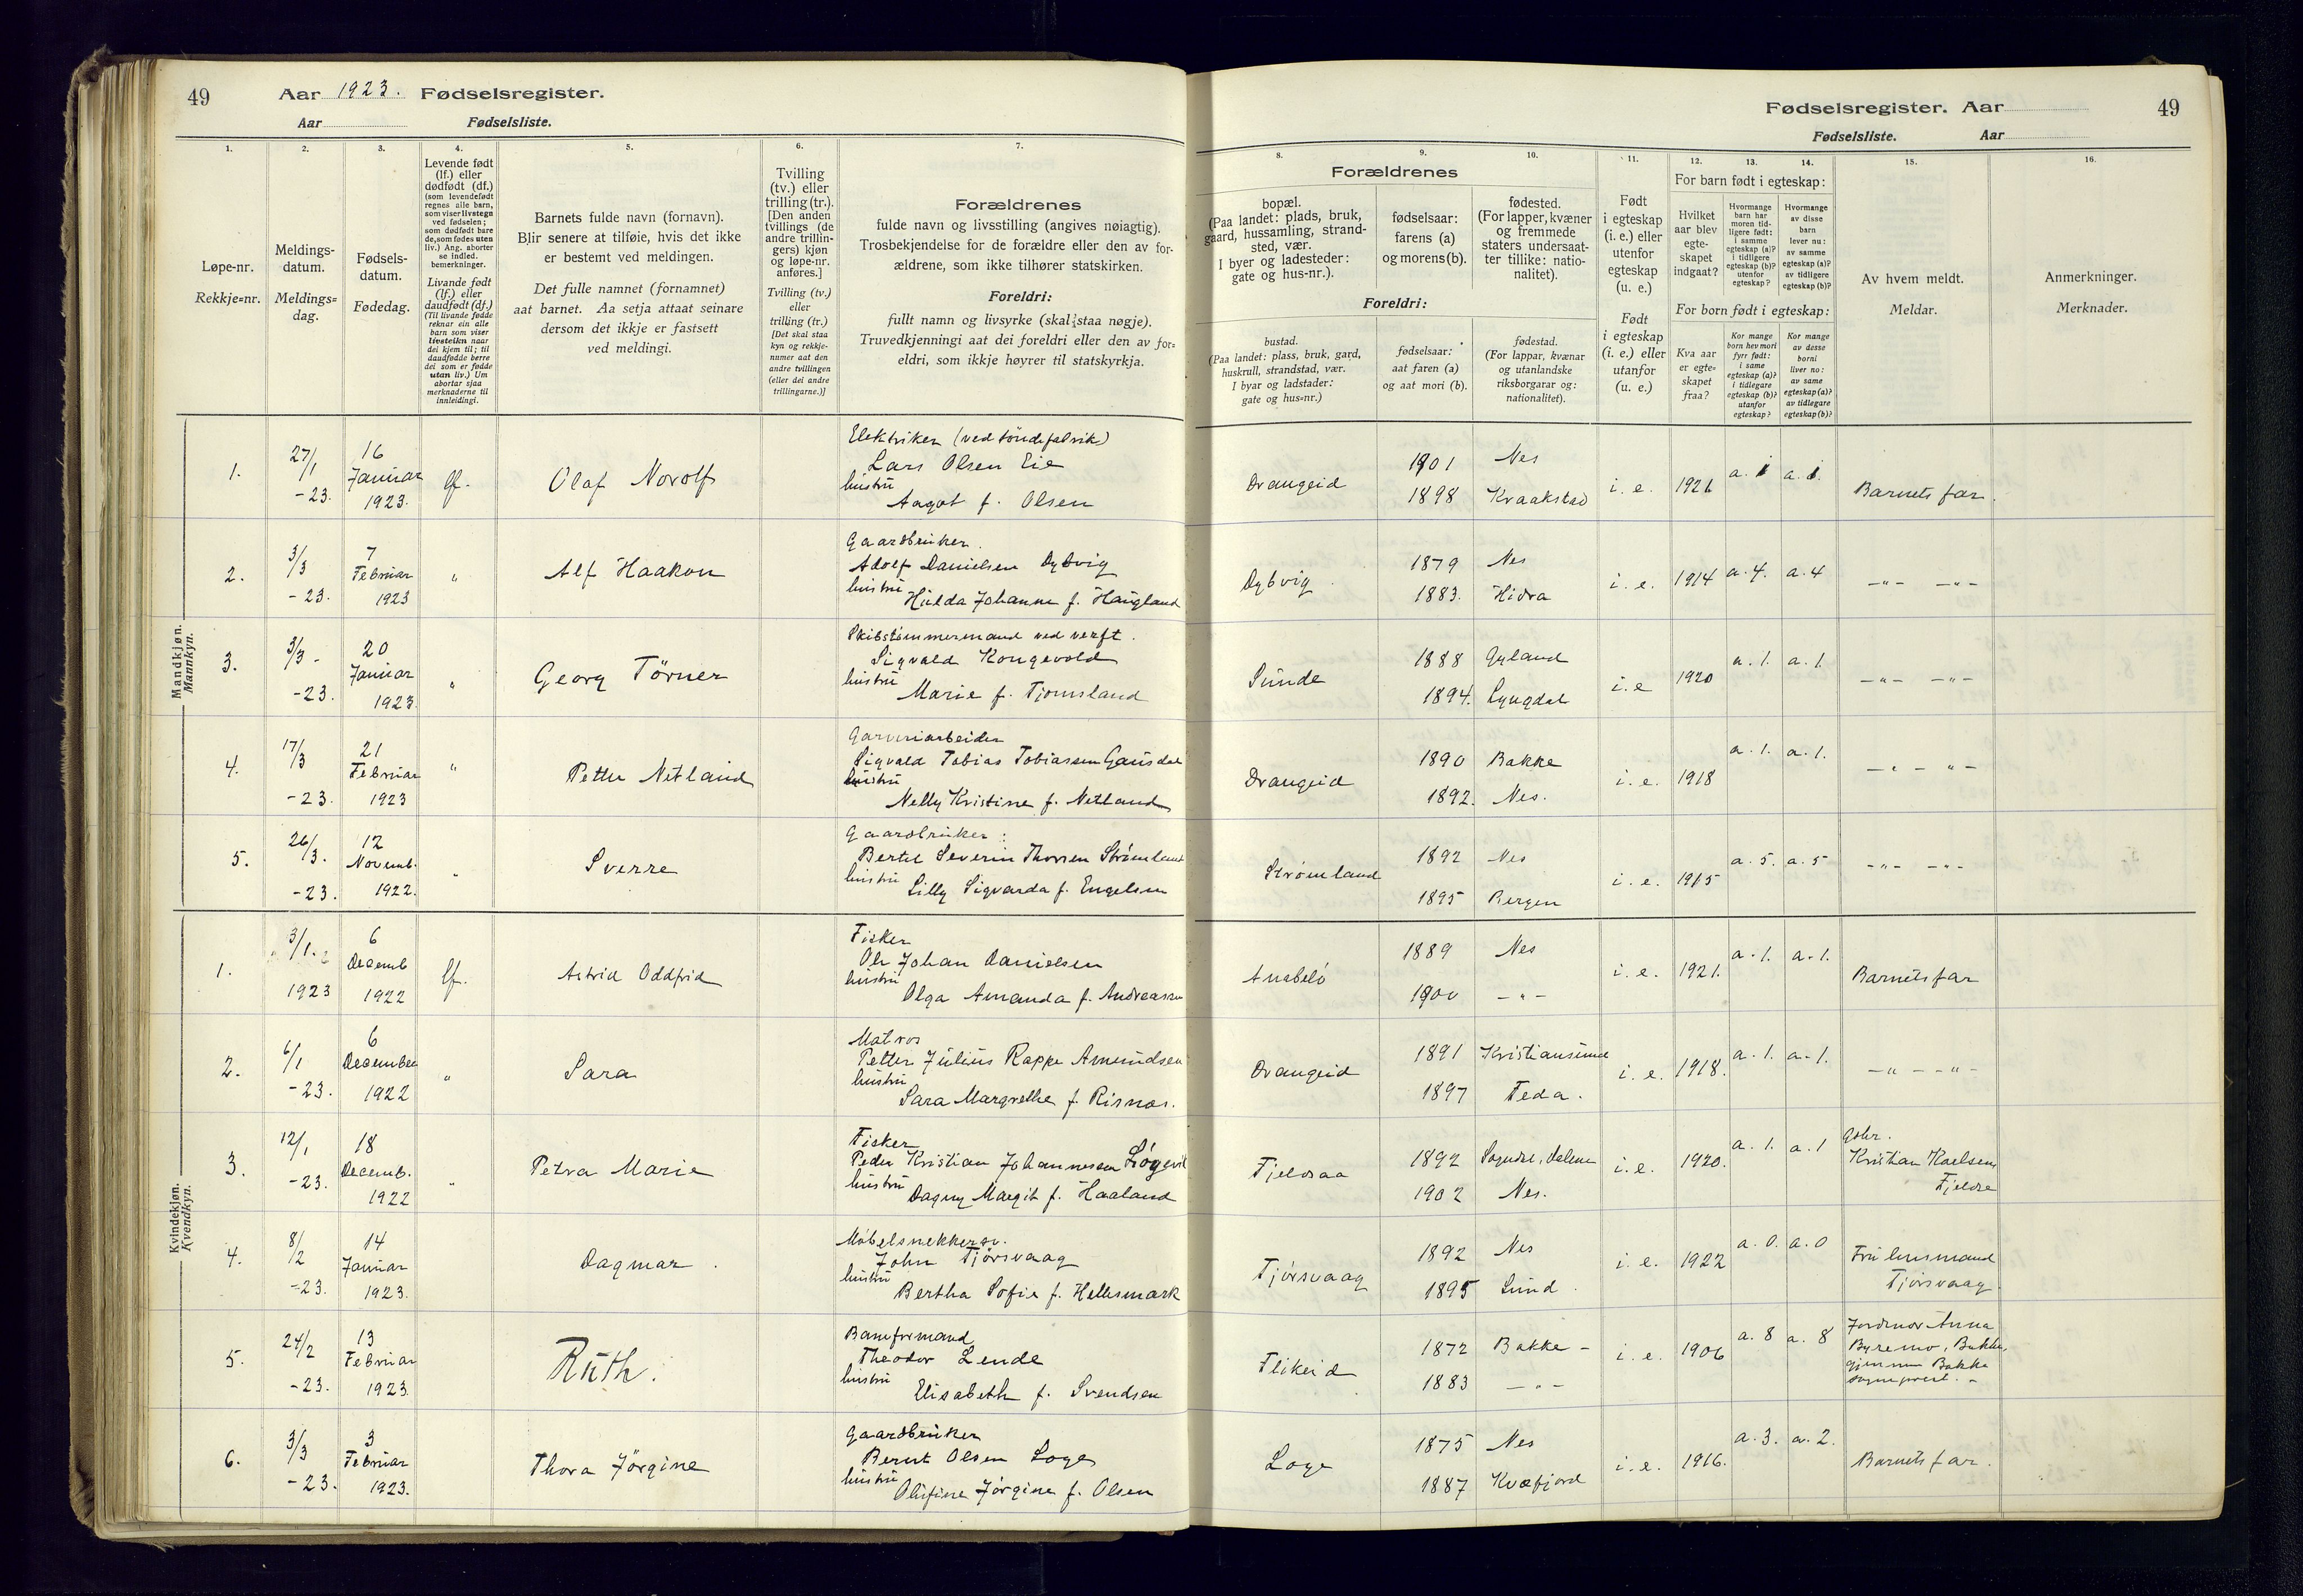 49
Aar 1923. Fødselsregister.
Aar Fødselsliste.
1. 2. 3. 4. 5. 6. 7.
Løpe-nr.
Rekkje=nr.
Meldings-
datum.
Meldings=
dag.
Fødsels-
datum.
Fødedag.
Levende født
(lf.) eller
dødfødt (df.)
(som levendefødt
regnes alle barn,
som viser livstegn
ved fødselen;
som dødfødt bare
de, som fødes uten
liv.) Ang. aborter
se indled.
bemerkninger.
Livande født
(lf.) eller
daudfødt (df.)
(Til livande fødde
reknar ein alle
barn som viser
livsteikn naar
dei kjem til; til
daudfødde berre
dei som er fødde
utan liv.) Um
abortar sjaa
merknaderne til
innleidingi.
Barnets fulde navn (fornavn).
Blir senere at tilføie, hvis det ikke
er bestemt ved meldingen.
Det fulle namnet (fornamnet)
aat barnet. Aa setja attaat seinare
dersom det ikkje er fastsett
ved meldingi.
Tvilling
(tv.) eller
trilling (tr.).
[Den anden
tvillings (de
andre trillin-
gers) kjøn
og løpe-nr.
anføres.]
Tvilling (tv.)
eller
trilling (tr.)
[Det skal staa
kyn og rekkje-
numer aat den
andre tvillingen
(eller dei andre
trillingarne.)]
Forældrenes
fulde navn og livsstilling (angives nøiagtig).
Trosbekjendelse for de forældre eller den av for-
ældrene, som ikke tilhører statskirken.
Foreldri:
fullt namn og livsyrke (skal staa nøgje).
Truvedkjenningi aat dei foreldri eller den av for=
eldri, som ikkje høyrer til statskyrkja.
Mandkjøn.
Mannkyn.
1. 27/1 -23. 16 Januar 1923. lf. Olaf Norolf
Elektriker (ved tøndefabrik)
Lars Olsen Eie
hustru
Aagot f. Olsen
2. 3/3 -23. 7 Februar 1923 " Alf Haakon
Gaardbruker.
Adolf Danielsen Dybvig
hustru
Hulda Johanne f. Haugland
3. 3/3 -23. 20 Januar 1923. " Georg Törner
Skibstømmermand ved verft.
Sigvald Kongevold
hustru
Marie f. Tjomsland
4. 17/3 -23. 21 Februar 1923 " Petter Netland
Garveriarbeider
Sigvald Tobias Tobiassen Gausdal
hustru
Nelly Kristine f. Netland
5. 26/3. -23. 12 Novemb. 1922. " Sverre
Gaardbruker:
Bertel Severin Thorsen Strømland
hustru
Lilly Sigvarda f. Engelsen
Kvindekjøn.
Kvendkyn.
1. 3/1. 1923 6 Decemb 1922 lf. Astrid Oddfrid
Fisker
Ole Johan Danielsen
hustru
Olga Amanda f. Andreassen
2. 6/1 -23. 6 December 1922 " Sara
Matros
Petter Julius Rappe Amundsen
hustru
Sara Margrethe f. Risnæs.
3. 12/1 -23. 18 Decemb. 1922 " Petra Marie
Fisker
Peder Kristian Johannesen
hustru
Dagny Margit f. Haaland
4. 8/2 -23. 14 Januar 1923. Dagmar.
Møbelsnekkersv.
John Tjørsvaag
hustru
Bertha Sofie f. Hellesmark
5. 24/2 -23. 13 Februar 1923. Ruth.
Baneformand
Theodor Lende
hustru
Elisabeth f. Svendsen
6. 3/3 -23. 3 Februar 1923. Thora Jörgine
Gaardbruker
Bernt Olsen Loge
hustru
Olufine Jørgine f. Olsen
Fødselsregister. Aar 49
Fødselsliste. Aar
8. 9. 10. 11. 12. 13. 14. 15. 16.
Forældrenes
bopæl.
(Paa landet: plads, bruk,
gaard, hussamling, strand-
sted, vær.
I byer og ladesteder:
gate og hus-nr.).
fødselsaar:
farens (a)
og morens (b).
fødested.
(For lapper, kvæner
og fremmede
staters undersaat-
ter tillike: natio-
nalitet).
Foreldri:
bustad.
(Paa landet: plass, bruk, gard,
huskrull, strandstad, vær.
I byar og ladstader:
gate og hus=nr.)
fødselsaar:
aat faren (a)
og aat mori (b).
fødestad.
(For lappar, kvænar
og utanlandske
riksborgarar og:
nationalitet).
Født
i egteskap
(i. e.) eller
utenfor
egteskap
(u. e.)
Født
i egteskap
(i. e.) eller
utanfor
(u. e.)
For barn født i egteskap:
Hvilket
aar blev
egte-
skapet
indgaat?
Hvormange
barn har
moren tid-
ligere født:
i samme
egteskap (a)?
i tidligere
egteskap (b)?
utenfor
egteskap?
Hvormange
av disse
barn
lever nu:
av samme
egteskap (a)?
av tidligere
egteskap (b)?
For born født i egteskap:
Kva aar
er egte=
skapet
fraa?
Kor mange
born hev mori
fyrr født:
i same
egteskap (a)?
i tidlegare
egteskap (b)?
utanfor
egteskap?
Kor mange
av desse
borni
liver no:
av same
egteskap (a)?
av tidlegare
egteskap (b)?
Av hvem meldt.
Meldar.
Anmerkninger.
Merknader.
Drangeid 1901 Nes
1898 Kraakstad i. e. 1921 a. 1 a. 1. Barnets far.
Dybvig. 1879 Nes
1883. Hidra i. e. 1914 a. 4. a. 4 -"- -"-
Sunde 1888 Gyland
1894. Lyngdal i. e 1920 a. 1. a. 1. -"- -"-
Drangeid 1890 Bakke
1892. Nes. i. e. 1918 a. 1. a. 1. -"- "-
Strømland 1892 Nes
1895 Bergen i. e. 1915 a. 5. a. 5 -"- -"-
Anabelö 1889 Nes
1900 -"- i. e. 1921. a. 1. a. 1. Barnets far
Drangeid 1891 Kristiansund
1897 Feda. i. e. 1918. a. 1. a. 1. -"- -"-
Fjeldsaa 1892 Sogndal, Dalene
1902 Nes. i. e. 1920. a. 1. a. 1
Gbr.
Kristian
Tjørsvaag 1892 Nes
1895 Lund. i. e. 1922 a. 0. a. 0
Fru
Tjørsvaag
Flikeid 1872 Bakke -
1883 -"- i. e. 1906 a. 8 a. 8
Jordmor Anna
Byremo, Bakke,
gjennem Bakke
sogneprest. -
Loge 1875 Nes
1887 Kvæfjord i. e. 1916. a. 3. a. 2. Barnets far.